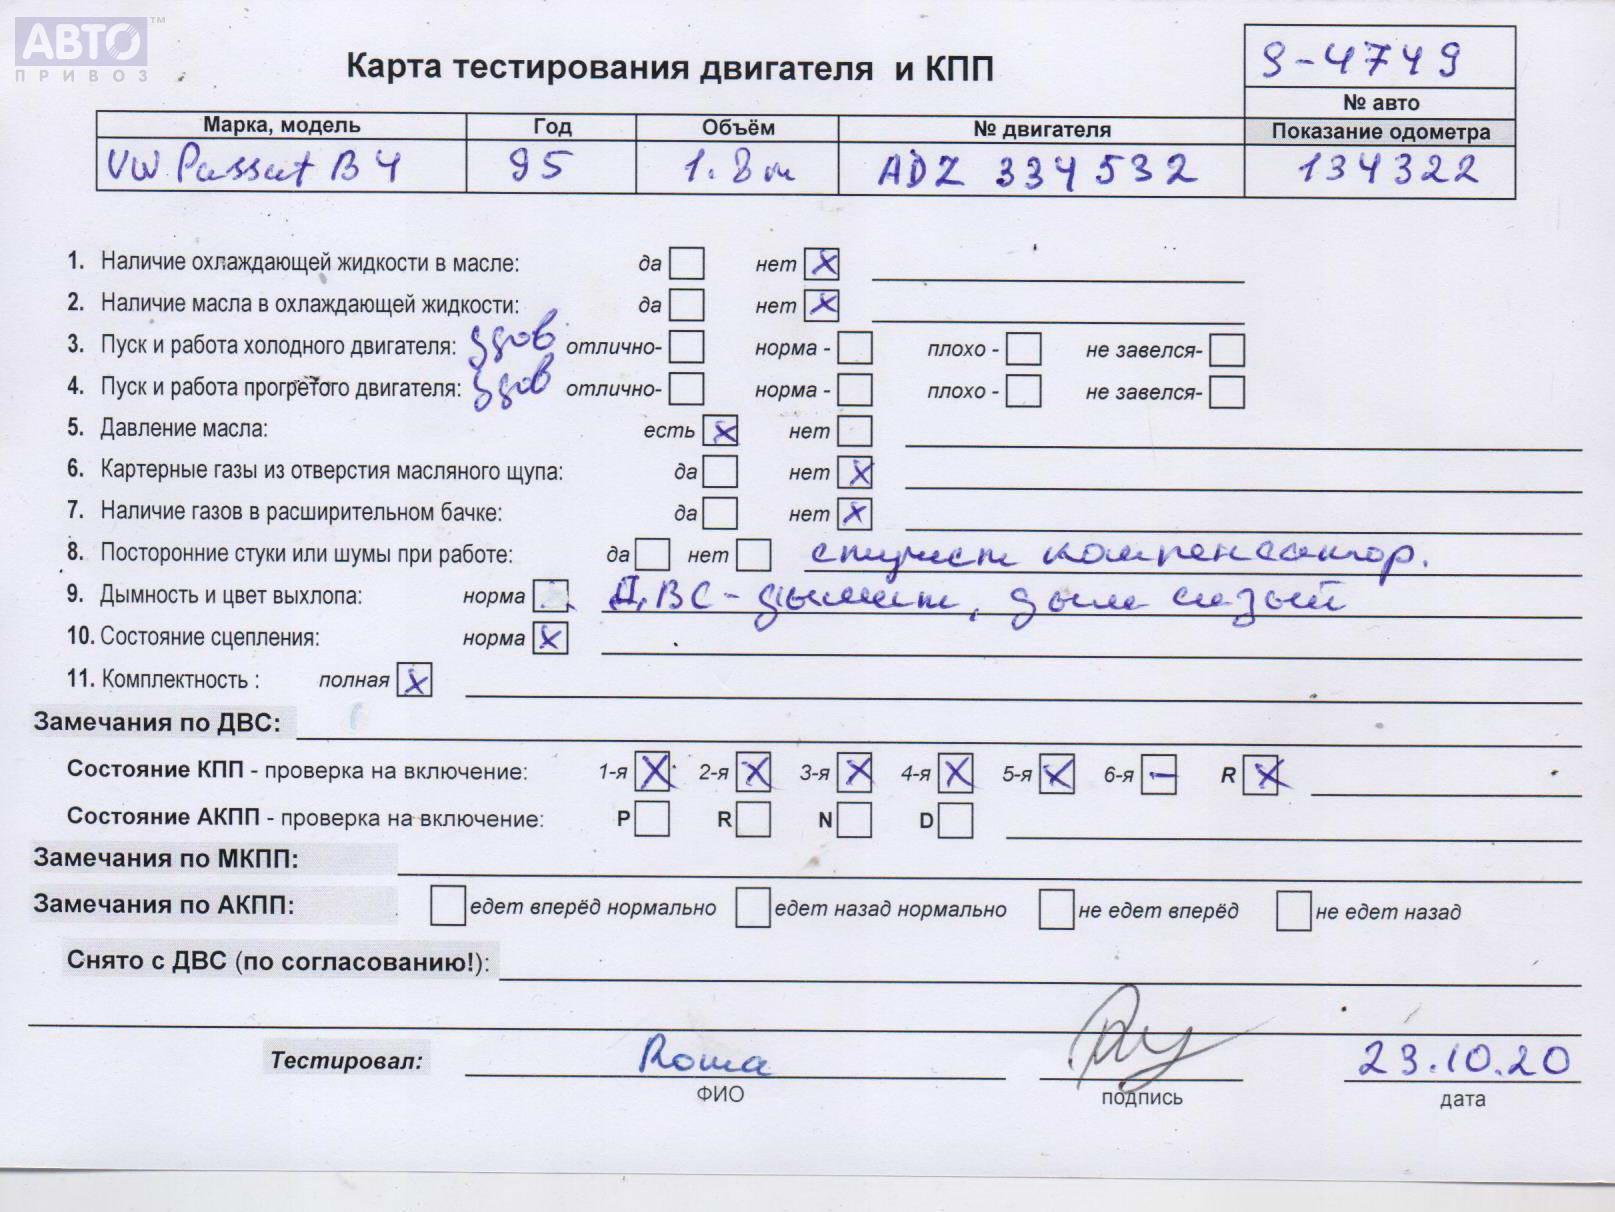 АВТО™
ПРИВОЗ
Карта тестирования двигателя и КПП
9-4749
№ авто
Марка, модель Год Объём № двигателя Показание одометра
VW Passat B4 95 1.8 м ADZ 334532 134322
1. Наличие охлаждающей жидкости в масле: да нет X
2. Наличие масла в охлаждающей жидкости: да нет X
3. Пуск и работа холодного двигателя: удов отлично- норма - плохо - не завелся-
4. Пуск и работа прогретого двигателя: удов отлично- норма - плохо - не завелся-
5. Давление масла: есть X нет
6. Картерные газы из отверстия масляного щупа: да нет X
7. Наличие газов в расширительном бачке: да нет X
8. Посторонние стуки или шумы при работе: да нет стучит компенсатор.
9. Дымность и цвет выхлопа: норма ДВС - дымит, дым сизый
10. Состояние сцепления: норма X
11. Комплектность : полная X
Замечания по ДВС:
Состояние КПП - проверка на включение: 1-я X 2-я X 3-я X 4-я X 5-я X 6-я — R X
Состояние АКПП - проверка на включение: P R N D
Замечания по МКПП:
Замечания по АКПП: едет вперёд нормально едет назад нормально не едет вперёд не едет назад
Снято с ДВС (по согласованию!):
Тестировал: Рома 23.10.20
ФИО подпись дата